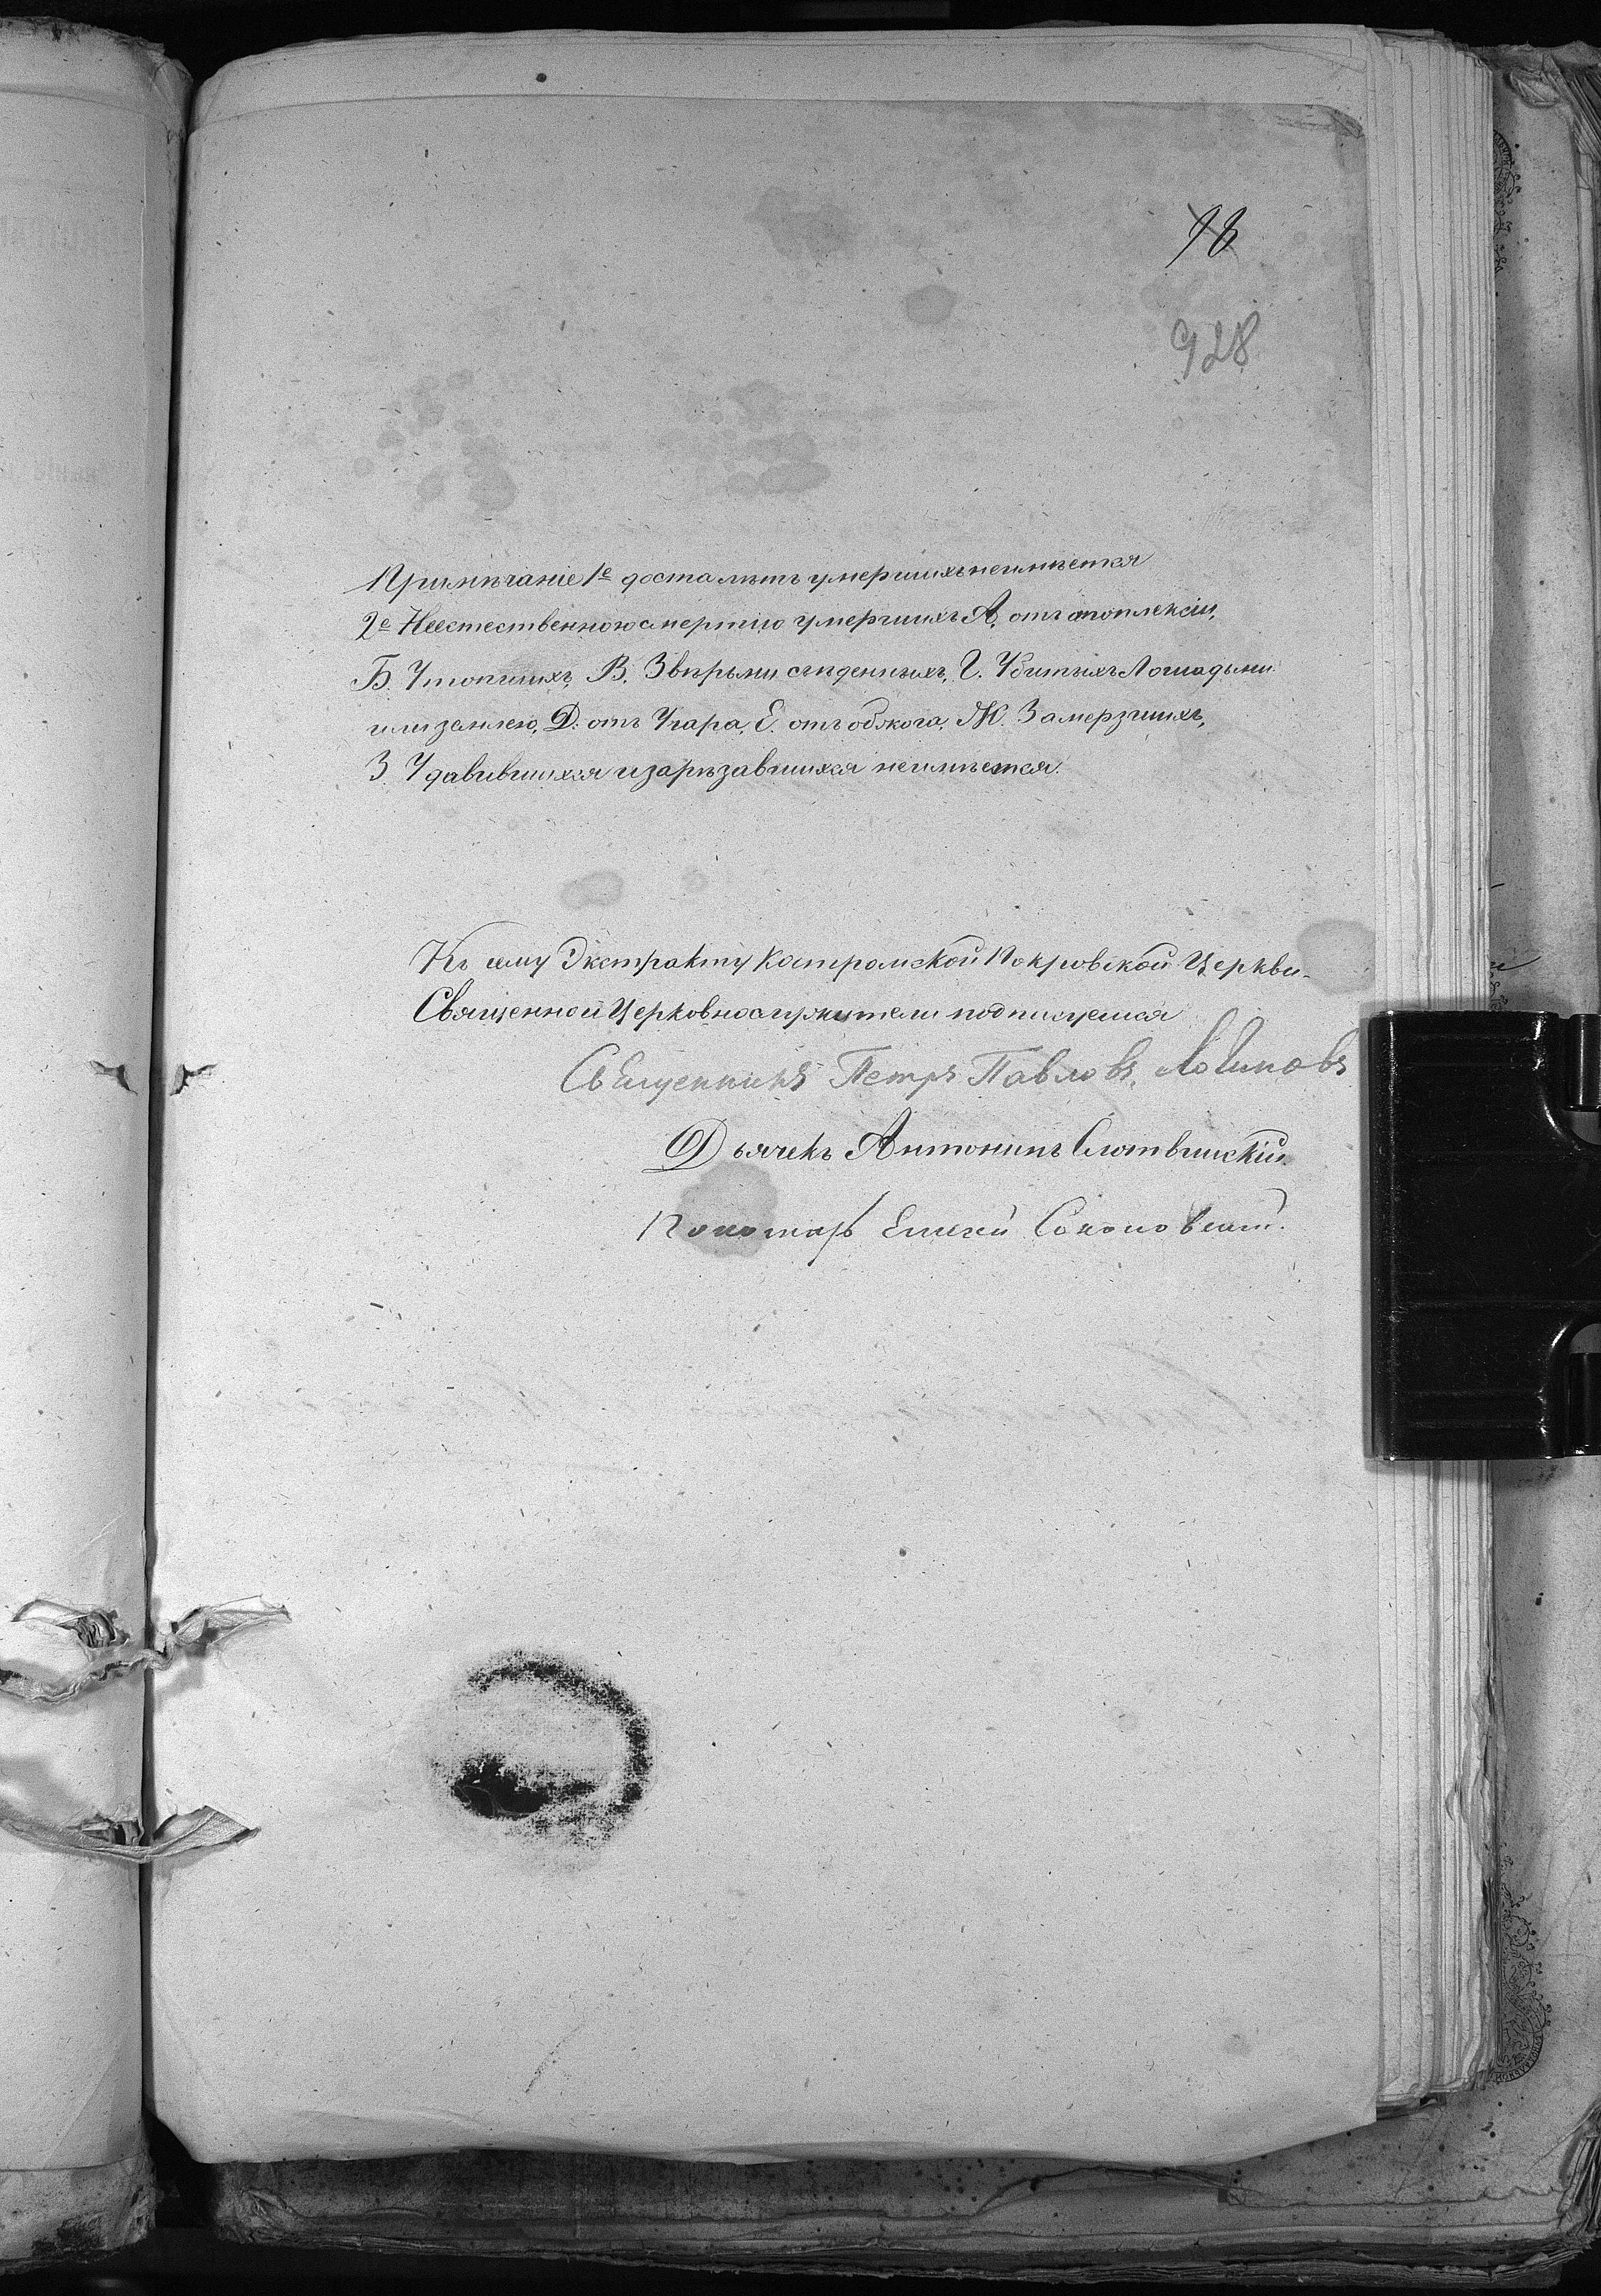 98
928
Примѣчаніе 1е до ста лѣтъ умершихъ неимѣется
2е Неестественною смертію умершихъ А, отъ апоплексіи,
Б. Утопшихъ, В. Звѣрьми съѣденныхъ, Г. Убитыхъ Лошадьми
или землею, Д. отъ Угара, Е. отъ обжога, Ж. Замерзшихъ,
З Удавившихся и зарѣзавшихся неимѣется.
Къ сему Экстракту Костромской Покровской Церкви
Священно и Церковнослужители подписуемся
Священникъ Петръ Павловъ
Дьячекъ Антонинъ Слотвинскій
Пономарь